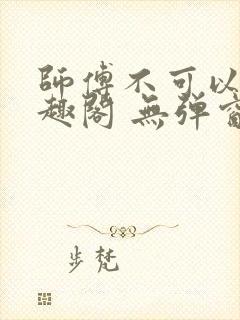 師傅不可以
趣閣 無彈窗
步梵